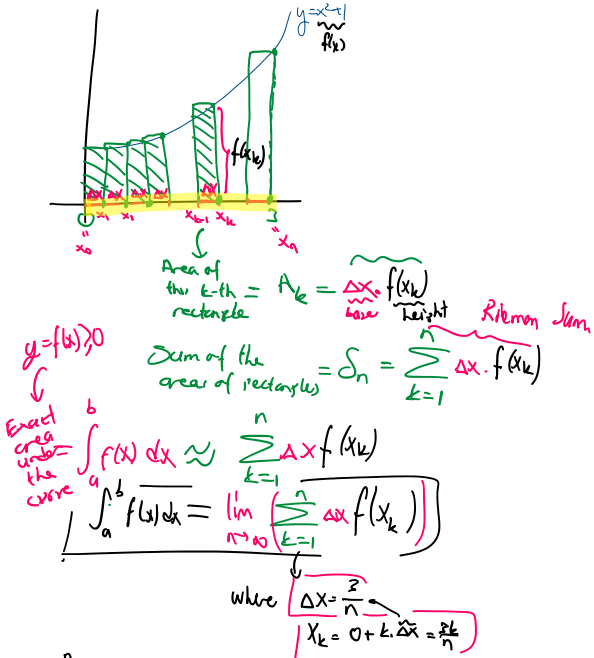 y=x²+1
f(x)
f(xₖ)
Δx Δx Δx Δx Δx
0 x₁ x₁ xₖ₋₁ xₖ 3
"
x₀
"
xₙ
Area of
this k-th
rectangle
= Aₖ = Δx. f(xₖ)
base height
Riemon Sum
y=f(x)≥0
Sum of the
areas of rectangles = Sₙ = ∑ₖ₌₁ⁿ Δx. f(xₖ)
Exact
area
under
the
curve
= ∫ₐᵇ f(x) dx ≈ ∑ₖ₌₁ⁿ Δx f(xₖ)
∫ₐᵇ f(x)dx = lim n→∞ (∑ₖ₌₁ⁿ Δx f(xₖ))
where Δx = 3/n
xₖ = 0+k.Δx = 3k/n